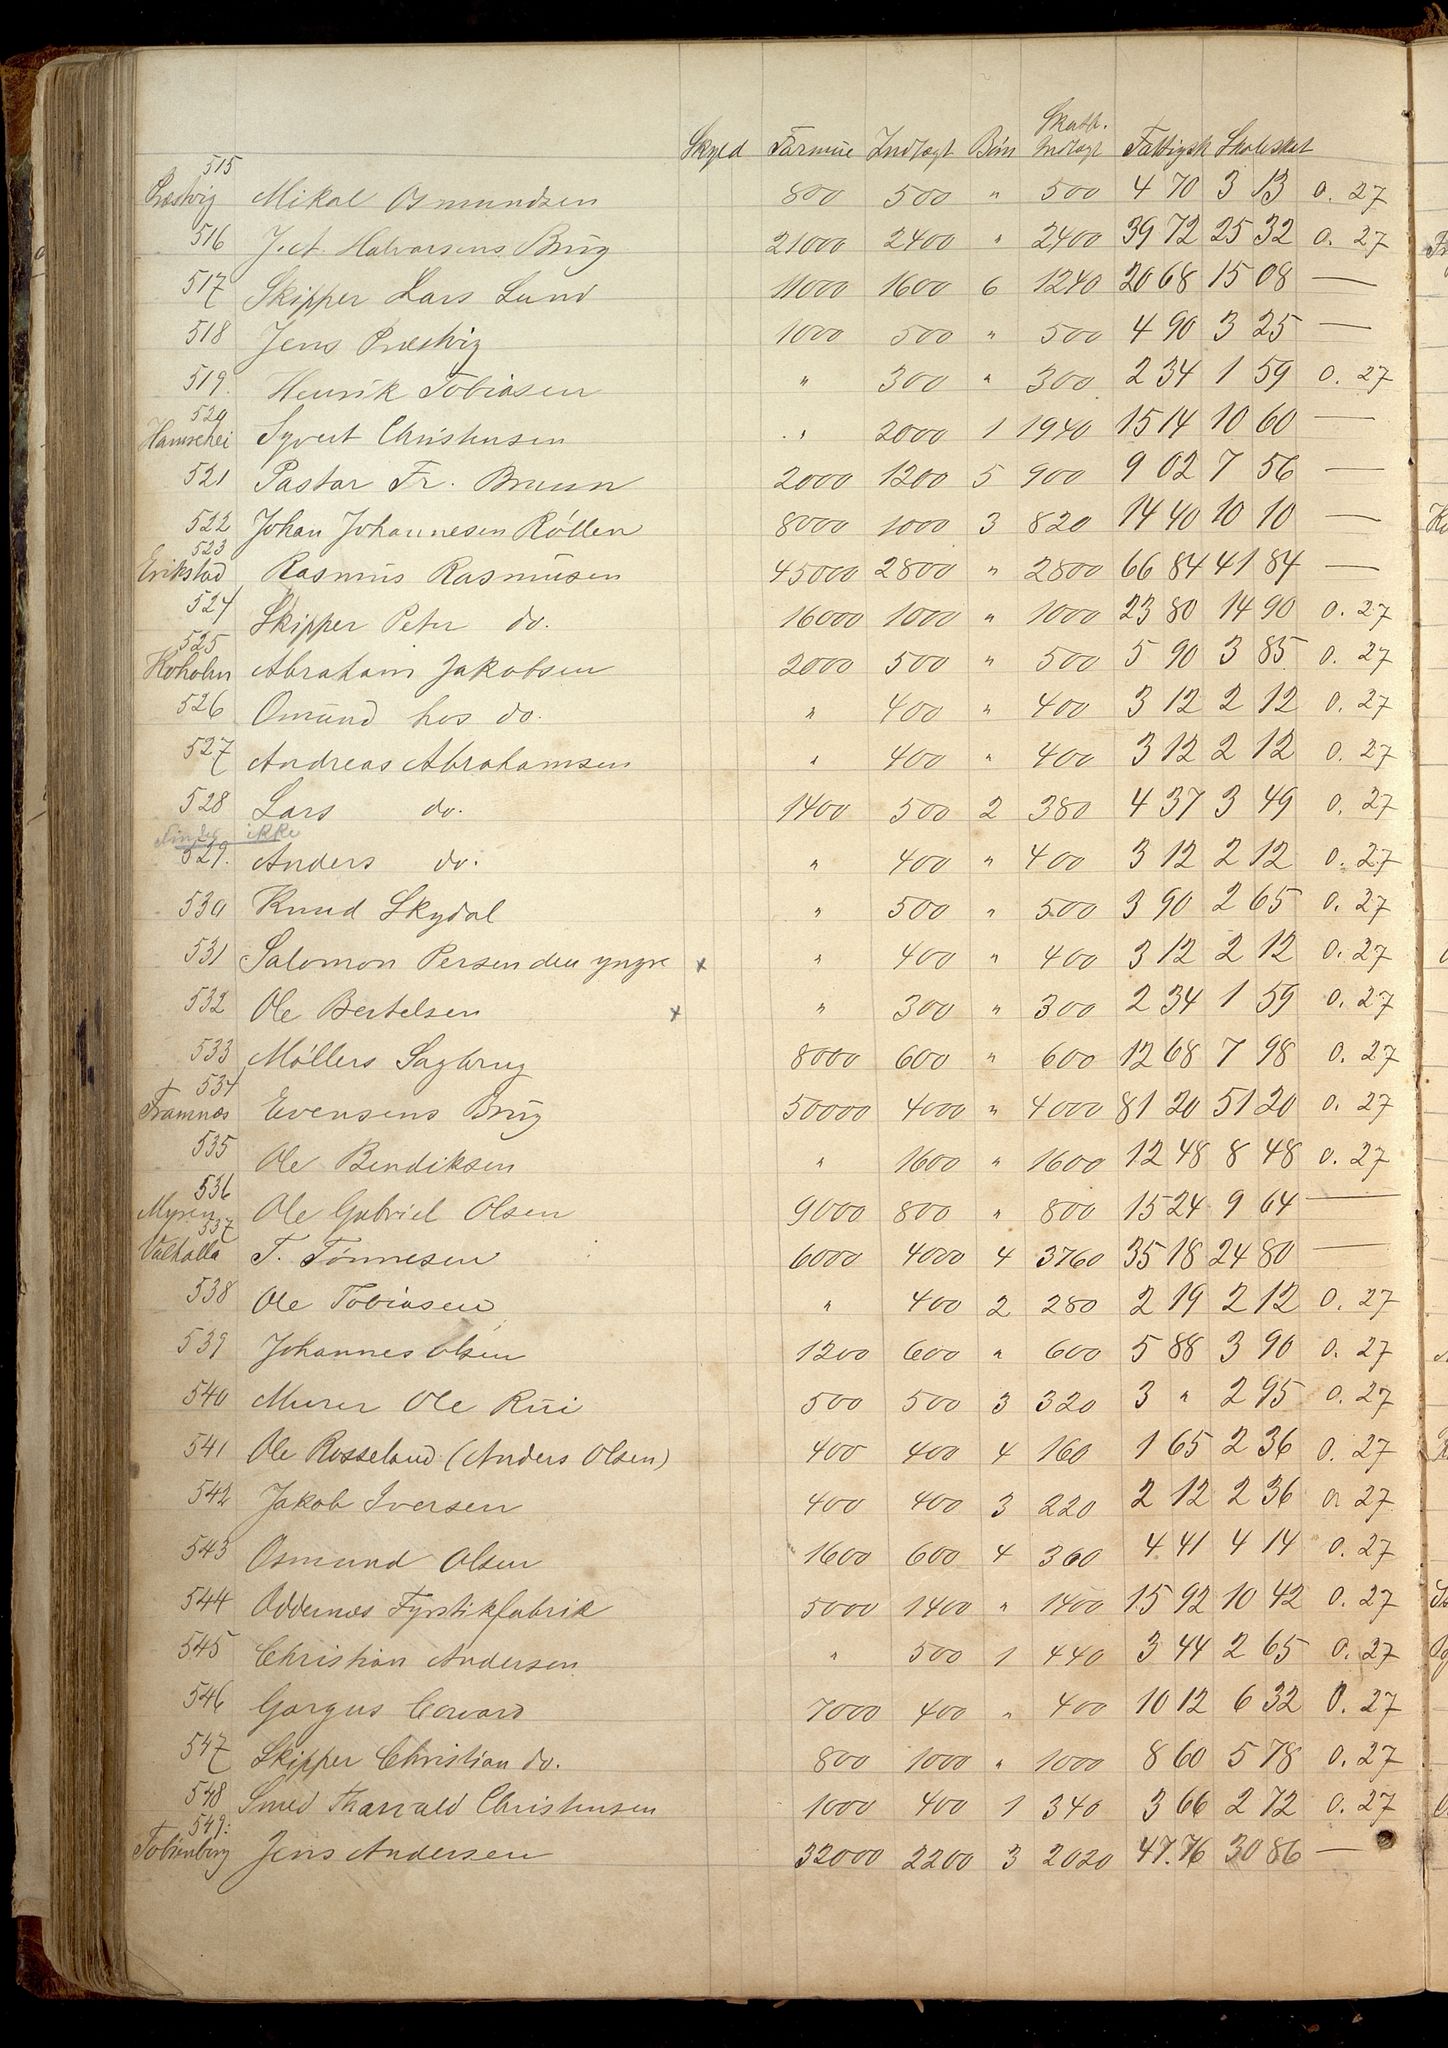 Skyld Formue Indtægt Børn Skattb. Indtægt Fattigsk Skoleskat
515 Præstvig Mikal Osmundsen 800 500 " 500 4 70 3 13 0. 27
516 J. A. Halvorsens Brug 21000 2400 " 2400 39 72 25 32 0. 27
517 Skipper Lars Lund 11000 1600 6 1240 20 68 15 08 —
518 Jens Præstvig 1000 500 " 500 4 90 3 25 —
519. Henrik Tobiasen " 300 " 300 2 34 1 59 0. 27
520 Syvert Christensen " 2000 1 1940 15 14 10 60 —
521 Pastor Fr. Bruun 2000 1200 5 900 9 02 7 56 —
522 Johan Johannesen Röllen 8000 1000 3 820 14 40 10 10 —
523 Erikstad Rasmus Rasmusen 45000 2800 " 2800 66 84 41 84 —
524 Skipper Peter do. 16000 1000 " 1000 23 80 14 90 0. 27
525 Koholm Abraham Jakobsen 2000 500 " 500 5 90 3 85 0. 27
526 Omund hos do. " 400 " 400 3 12 2 12 0. 27
527 Andreas Abrahamsen " 400 " 400 3 12 2 12 0. 27
528 Lars do. 1400 500 2 380 4 37 3 49 0. 27
Findes ikke
529. Anders do. " 400 " 400 3 12 2 12 0. 27
530 Knud Skydal " 500 " 500 3 90 2 65 0. 27
531 Salomon Persen den yngre x " 400 " 400 3 12 2 12 0. 27
532 Ole Bertelsen x " 300 " 300 2 34 1 59 0. 27
533 Möllers Sagbrug 8000 600 " 600 12 68 7 98 0. 27
534 Framnæs Evensens Brug 50000 4000 " 4000 81 20 51 20 0. 27
535 Ole Bendiksen " 1600 " 1600 12 48 8 48 0. 27
536 Myren Ole Gabriel Olsen 9000 800 " 800 15 24 9 64 —
537 Valhalla T. Tönnesen 6000 4000 4 3760 35 18 24 80 —
538 Ole Tobiasen " 400 2 280 2 19 2 12 0. 27
539 Johannes Olsen 1200 600 " 600 5 88 3 90 0. 27
540 Murer Ole Rui 500 500 3 320 3 " 2 95 0. 27
541 Ole Rosseland (Anders Olsen) 400 400 4 160 1 65 2 36 0. 27
542 Jakob Iversen 400 400 3 220 2 12 2 36 0. 27
543 Osmund Olsen 1600 600 4 360 4 41 4 14 0. 27
544 Oddernæs Fyrstikfabrik 5000 1400 " 1400 15 92 10 42 0. 27
545 Christian Andersen " 500 1 440 3 44 2 65 0. 27
546 Gorgus Coward 7000 400 " 400 10 12 6 32 0. 27
547 Skipper Christian do. 800 1000 " 1000 8 60 5 78 0. 27
548 Smed Thorvald Christensen 1000 400 1 340 3 66 2 72 0. 27
549: Tobienborg Jens Andersen 32000 2200 3 2020 47. 76 30 86 —